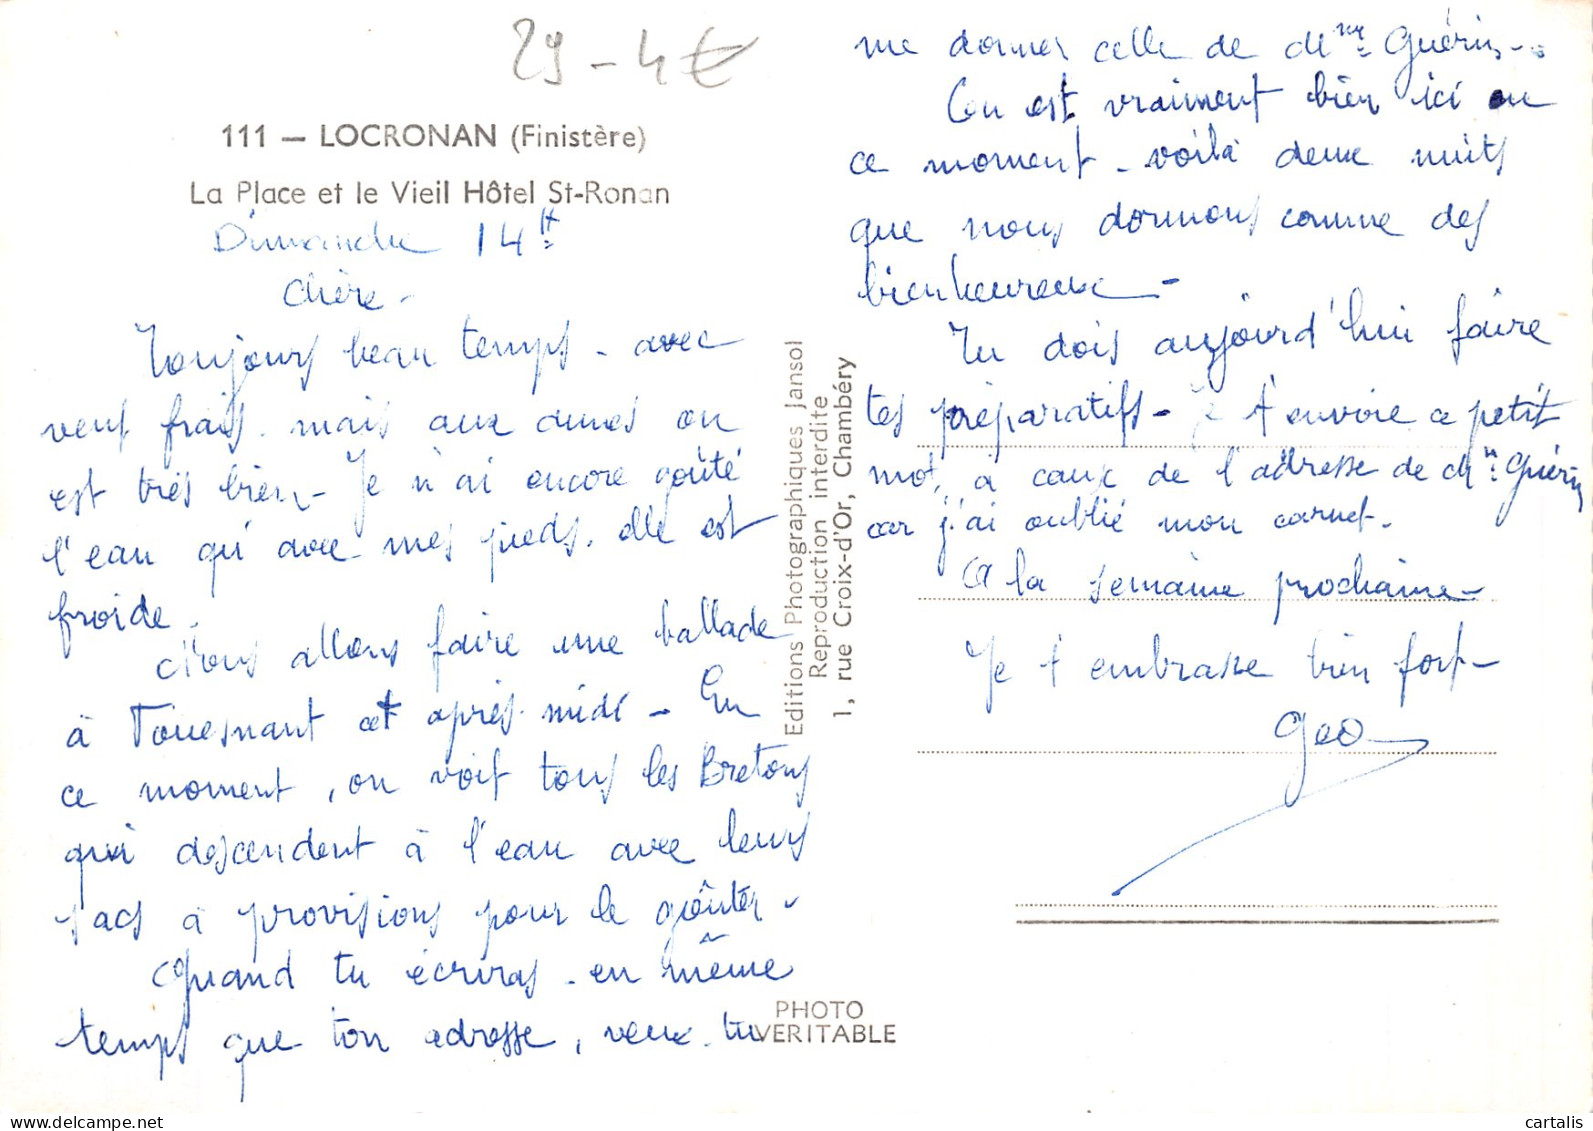 29 - 4€
111 — LOCRONAN (Finistère)
La Place et le Vieil Hôtel St-Ronan
Dimanche 14 
Chère -
Toujours beau temps - avec
vent frais. mais aux dunes on
est très bien - Je n'ai encore goûté
l'eau qu'avec mes pieds. elle est
froide.
Nous allons faire une ballade
à Fouesnant cet après-midi - En
ce moment, on voit tous les Bretons
qui descendent à l'eau avec leurs
sacs à provisions pour le goûter -
Quand tu écriras - en même
temps que ton adresse, veux-tu
me donner celle de Mme Guérin -
On est vraiment bien ici en
ce moment - voilà deux nuits
que nous dormons comme des
bienheureux -
Tu dois aujourd'hui faire
tes préparatifs - Je t'envoie ce petit
mot, à cause de l'adresse de Mme Guérin
car j'ai oublié mon carnet.
A la semaine prochaine -
Je t'embrasse bien fort -
Geo
Editions Photographiques Jansol
Reproduction interdite
1, rue Croix-d'Or, Chambéry
PHOTO
VERITABLE
cartalis
www.delcampe.net